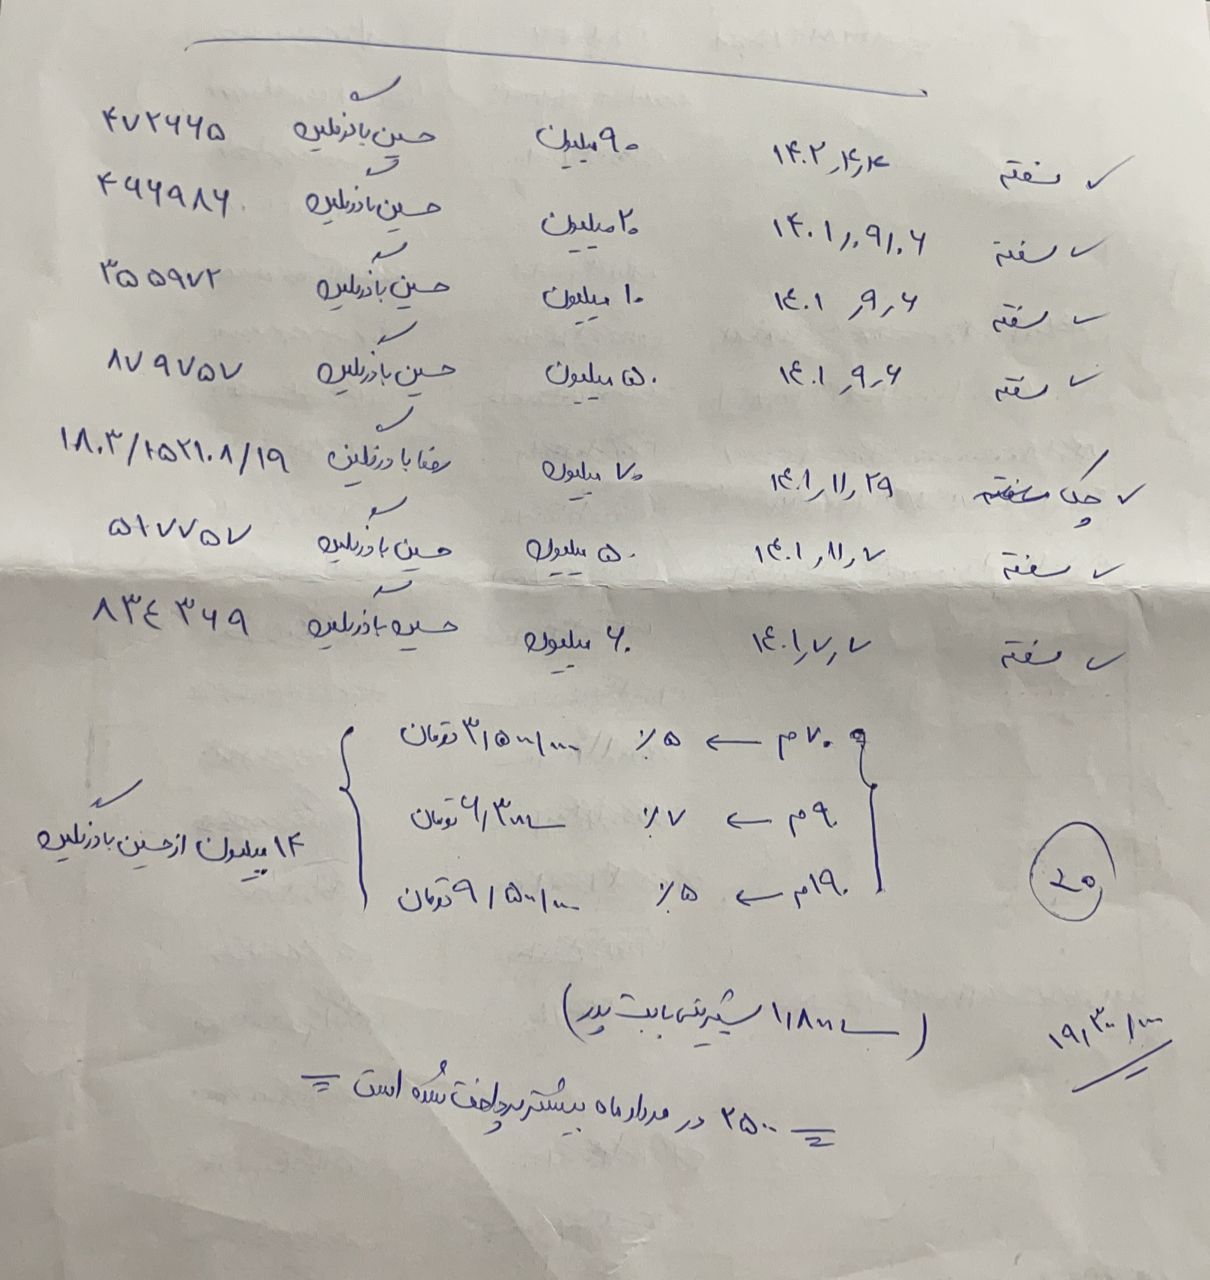 ✓ سفته ۱۴۰۲٫۴٫۴ ۹۰ میلیون حسین باذرنگین ۴۷۲۶۶۵
✓ سفته ۱۴۰۱٫۰۹٫۰۶ ۲۰ میلیون حسین باذرنگین ۴۶۶۹۸۶
✓ سفته ۱۴۰۱٫۹٫۶ ۱۰ میلیون حسین باذرنگین ۳۵۵۹۷۲
✓ سفته ۱۴۰۱٫۹٫۶ ۵۰ میلیون حسین باذرنگین ۸۷۹۷۵۷
✓ چک ۱۴۰۱٫۱۱٫۲۹ ۷۰ میلیون رضا باذرنگین
✓ سفته ۱۴۰۱٫۱۱٫۷ ۵۰ میلیون حسین باذرنگین ۵۱۷۷۵۷
✓ سفته ۱۴۰۱٫۷٫۷ ۶۰ میلیون حسین باذرنگین ۸۳۴۳۶۹
۷۰م ← ۵٪ ۳٫۵۰۰٫۰۰۰ تومان
۹۰م ← ۷٪ ۶٫۳۰۰ تومان
۱۹۰م ← ۵٪ ۹٫۵۰۰٫۰۰۰ تومان
۱۴ میلیون از حسین باذرنگین
۲۰
۱۹٫۳۰۰٫۰۰۰
(۱٫۸۰۰ شیرینی بابت پدر)
= ۲۵۰۰ در مرداد ماه بیشتر پرداخت شده است =